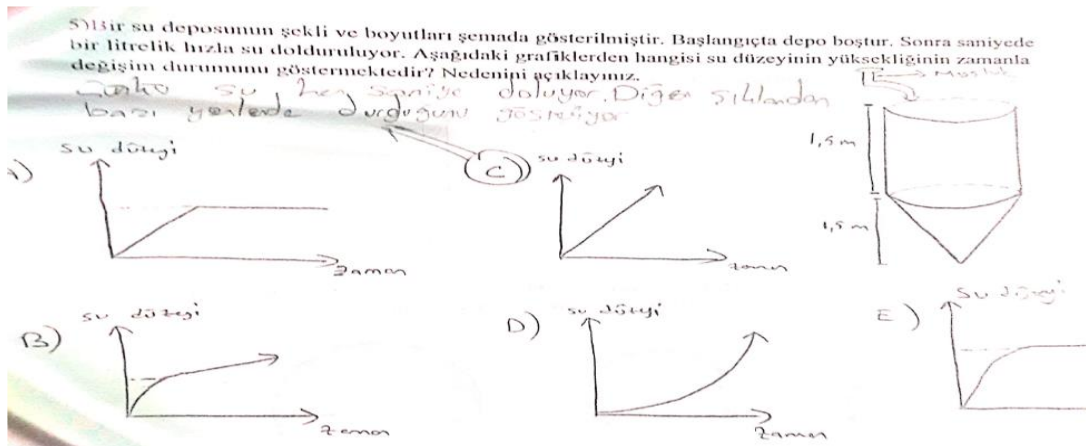 5) Bir su deposunun şekli ve boyutları şemada gösterilmiştir. Başlangıçta depo boştur. Sonra saniyede
bir litrelik hızla su dolduruluyor. Aşağıdaki grafiklerden hangisi su düzeyinin yüksekliğinin zamanla
değişim durumunu göstermektedir? Nedenini açıklayınız.
Musluk
su her saniye doluyor. Diğer şıklardan
bazı yerlerde durduğunu gösteriyor
1,5 m
1,5 m
A)
su düzeyi
zaman
C)
su düzeyi
zaman
B)
su düzeyi
zaman
D)
su düzeyi
zaman
E)
su düzeyi